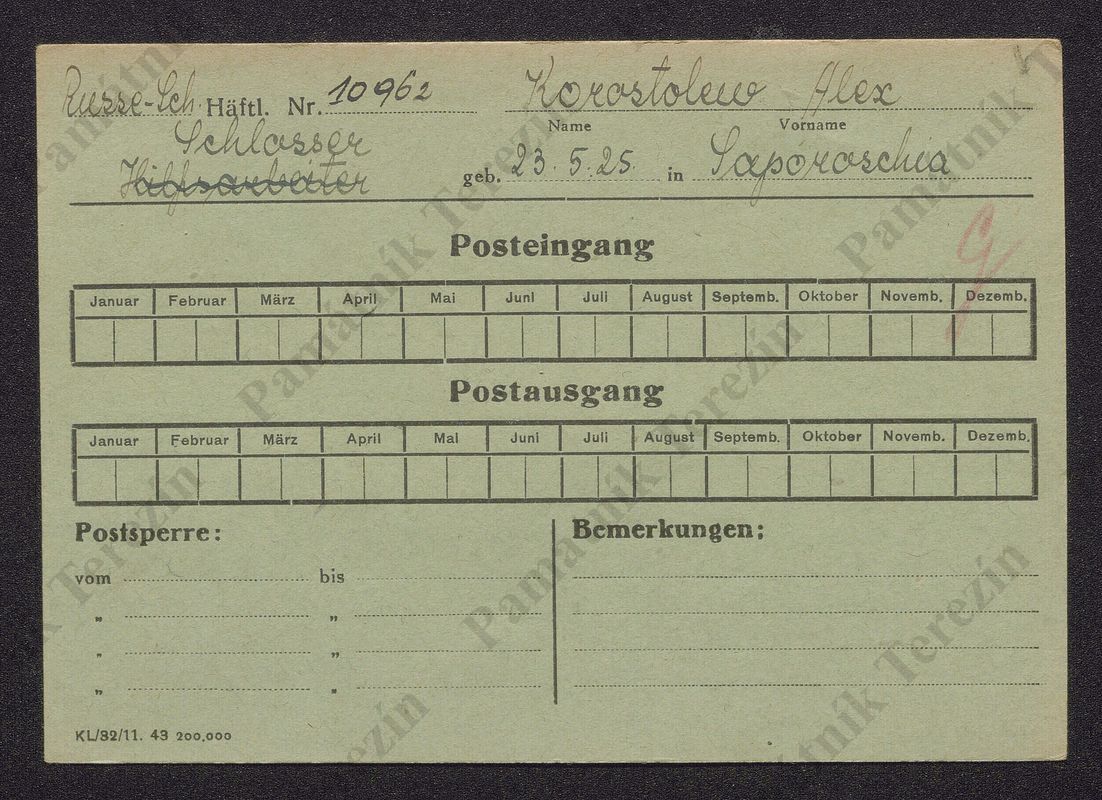 Russe-Sch. Häftl. Nr. 10962 Korostolew Alex
Name Vorname
Schlosser
Hilfsarbeiter geb. 23.5.25. in Saporoschia
Posteingang
Januar Februar März April Mai Juni Juli August Septemb. Oktober Novemb. Dezemb.
Postausgang
Januar Februar März April Mai Juni Juli August Septemb. Oktober Novemb. Dezemb.
Postsperre: Bemerkungen:
vom bis
„ „
„ „
„ „
KL/32/11. 43 200,000
Památník Terezín